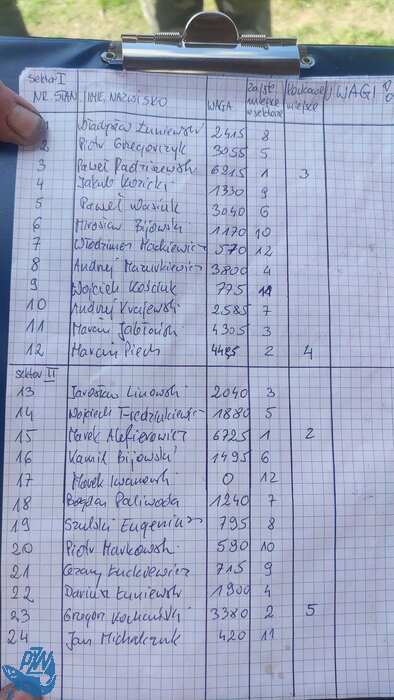 Sektor I
NR STAN IMIĘ, NAZWISKO WAGA zajęte miejsce w sektorze Końcowe miejsce UWAGI
1 Władysław Łuniewski 2415 8
2 Piotr Grzegorczyk 3055 5
3 Paweł Radziszewski 6215 1 3
4 Jakub Kozicki 1330 9
5 Paweł Wasiuk 3040 6
6 Mirosław Bijowski 1170 10
7 Włodzimierz Mackiewicz 570 12
8 Andrzej Mazurkiewicz 3800 4
9 Wojciech Kościuk 775 11
10 Andrzej Krajewski 2585 7
11 Marcin Jabłoński 4305 3
12 Marcin Piech 4485 2 4
Sektor II
13 Jarosław Linowski 2040 3
14 Wojciech 1880 5
15 Marek Alefierowicz 6725 1 2
16 Kamil Bijowski 1495 6
17 Marek Iwanowski 0 12
18 Bogdan Paliwoda 1240 7
19 Szulski Eugeniusz 795 8
20 Piotr Markowski 590 10
21 Cezary Łuckiewicz 715 9
22 Dariusz Łuniewski 1900 4
23 Grzegorz Kochański 3380 2 5
24 Jan Michalczuk 420 11
PZW